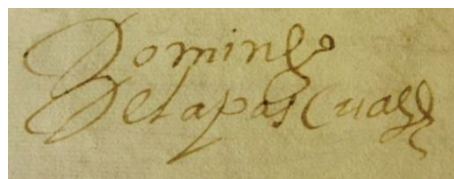 Domingo
de la pascua